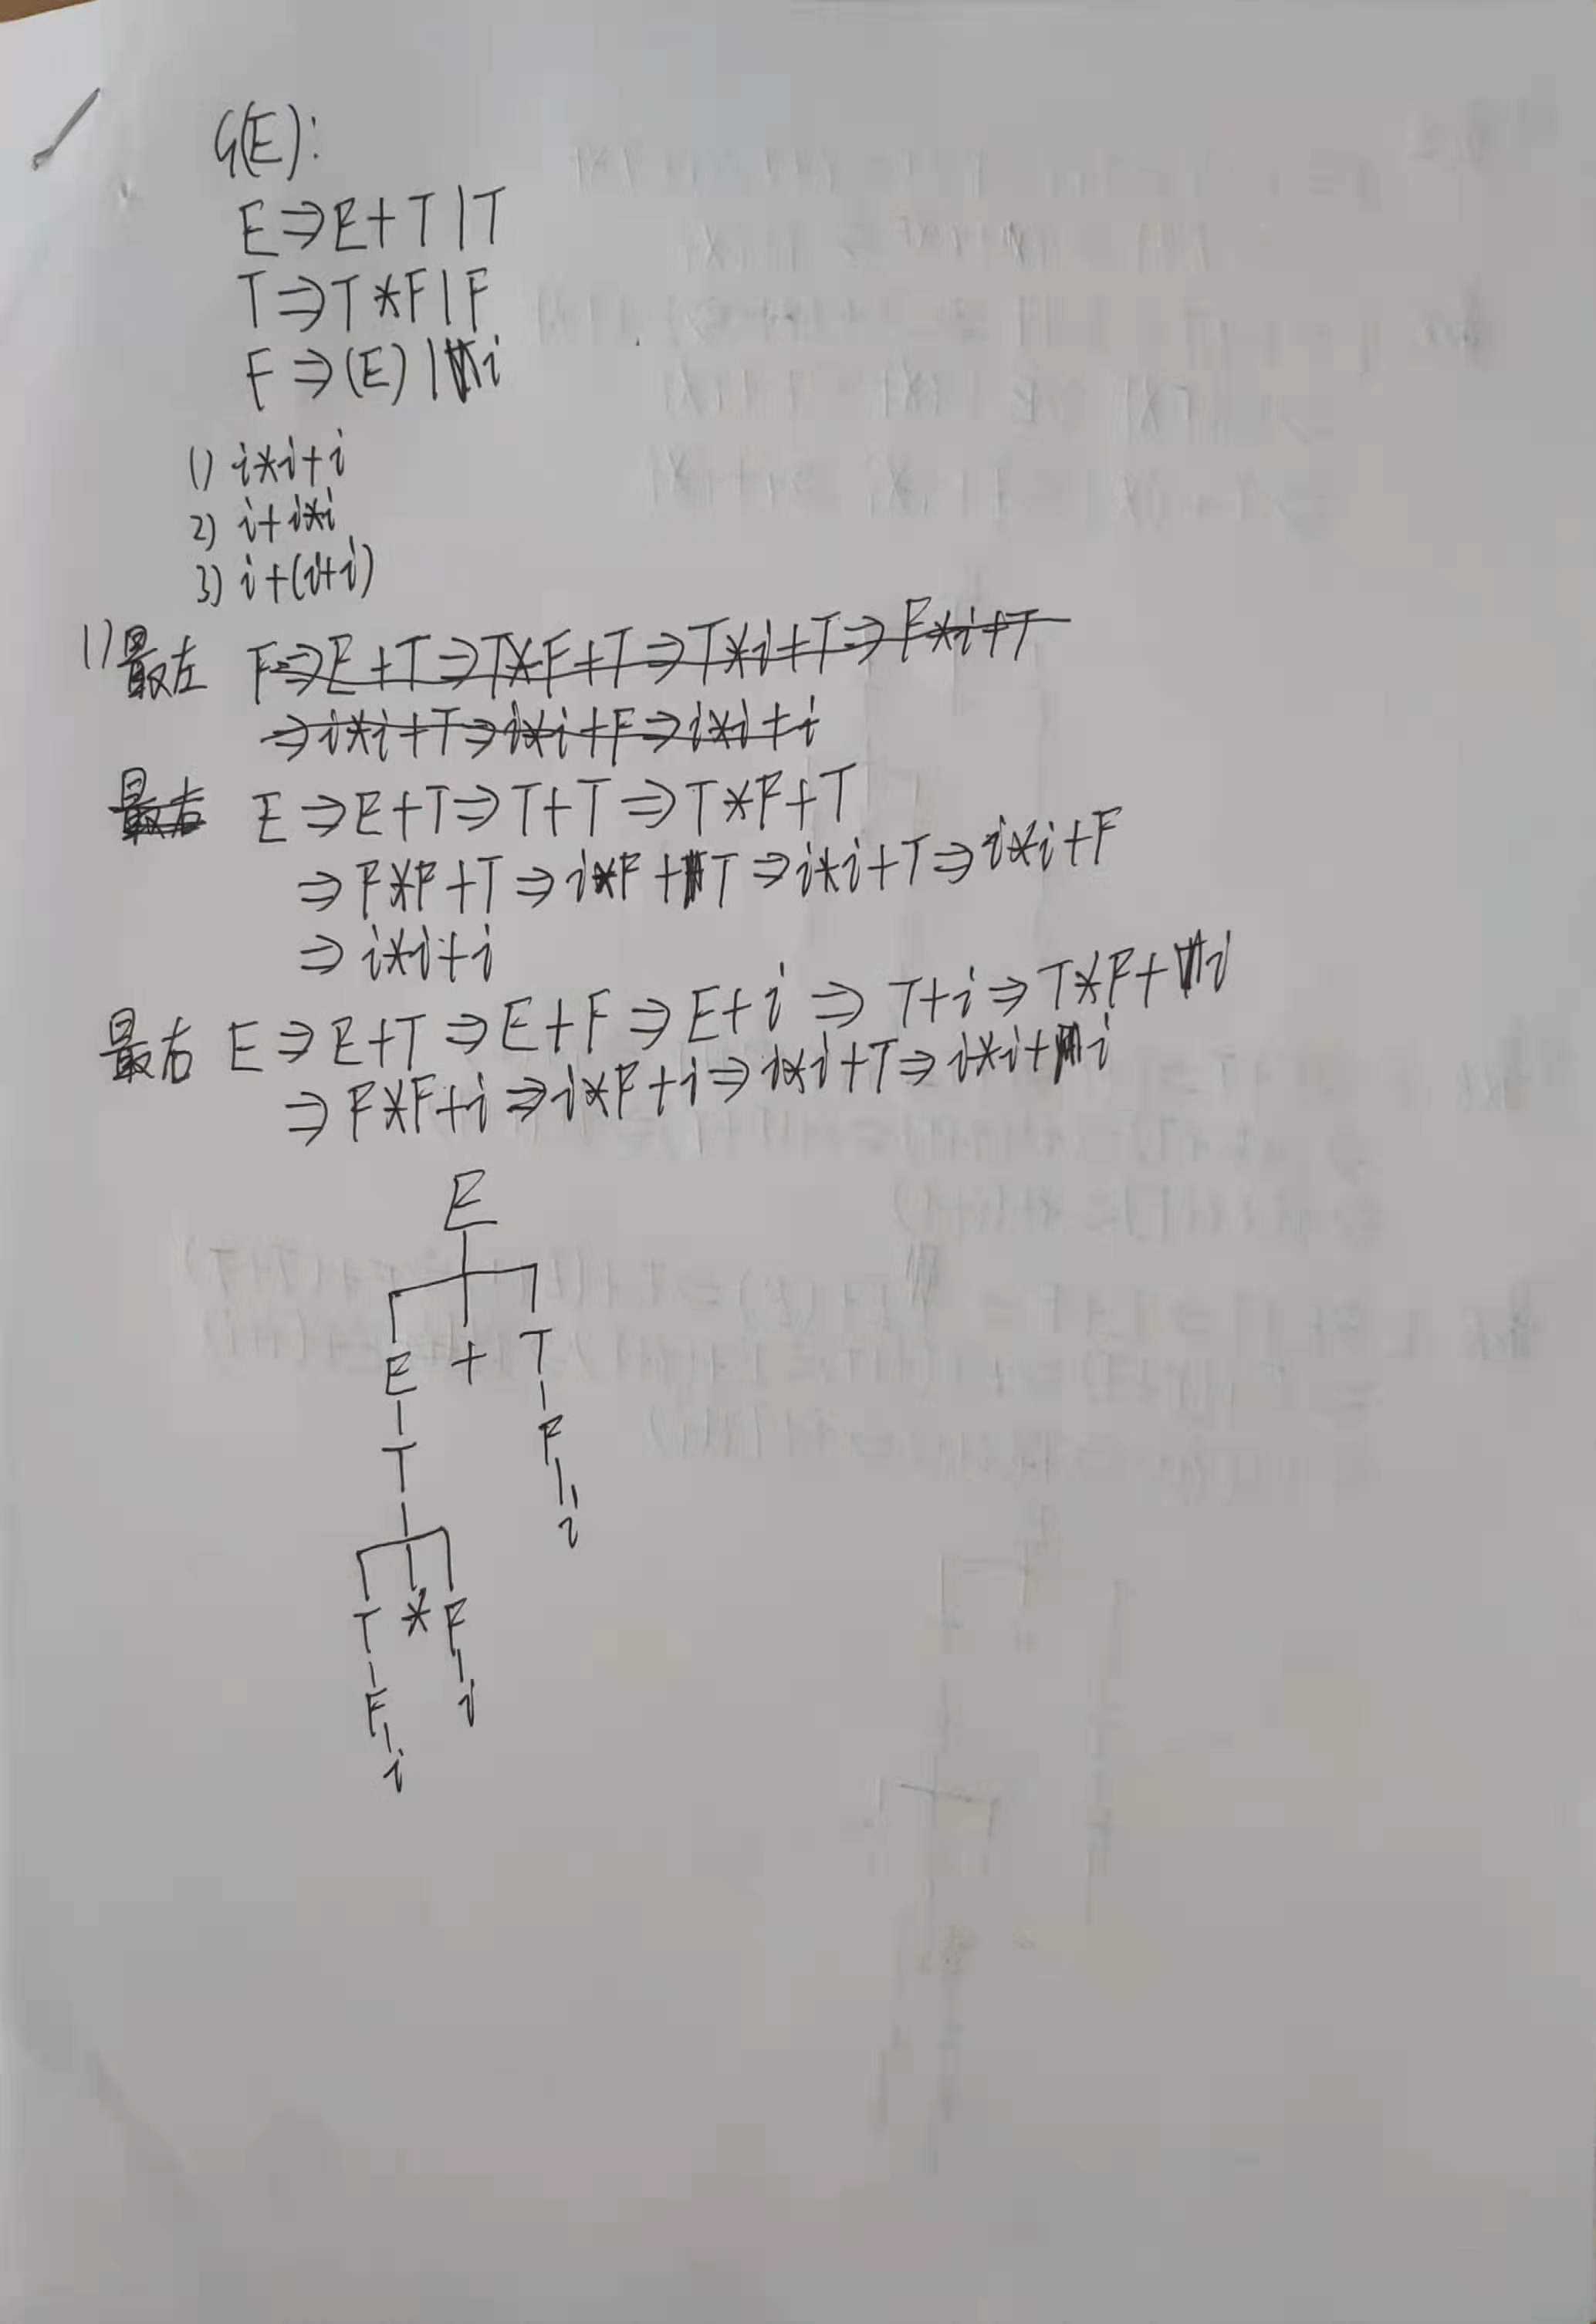 G(E):
E⇒E+T|T
T⇒T*F|F
F⇒(E)|i
1) i*i+i
2) i+i*i
3) i+(i+i)
1) 最左 E⇒E+T⇒T*F+T⇒T*i+T⇒F*i+T
⇒i*i+T⇒i*i+F⇒i*i+i
最右 E⇒E+T⇒T+T⇒T*F+T
⇒F*F+T⇒i*F+T⇒i*i+T⇒i*i+F
⇒i*i+i
最右 E⇒E+T⇒E+F⇒E+i⇒T+i⇒T*F+i
⇒F*F+i⇒i*F+i⇒i*i+T⇒i*i+i
E
E + T
T F
i
T * F
F i
i